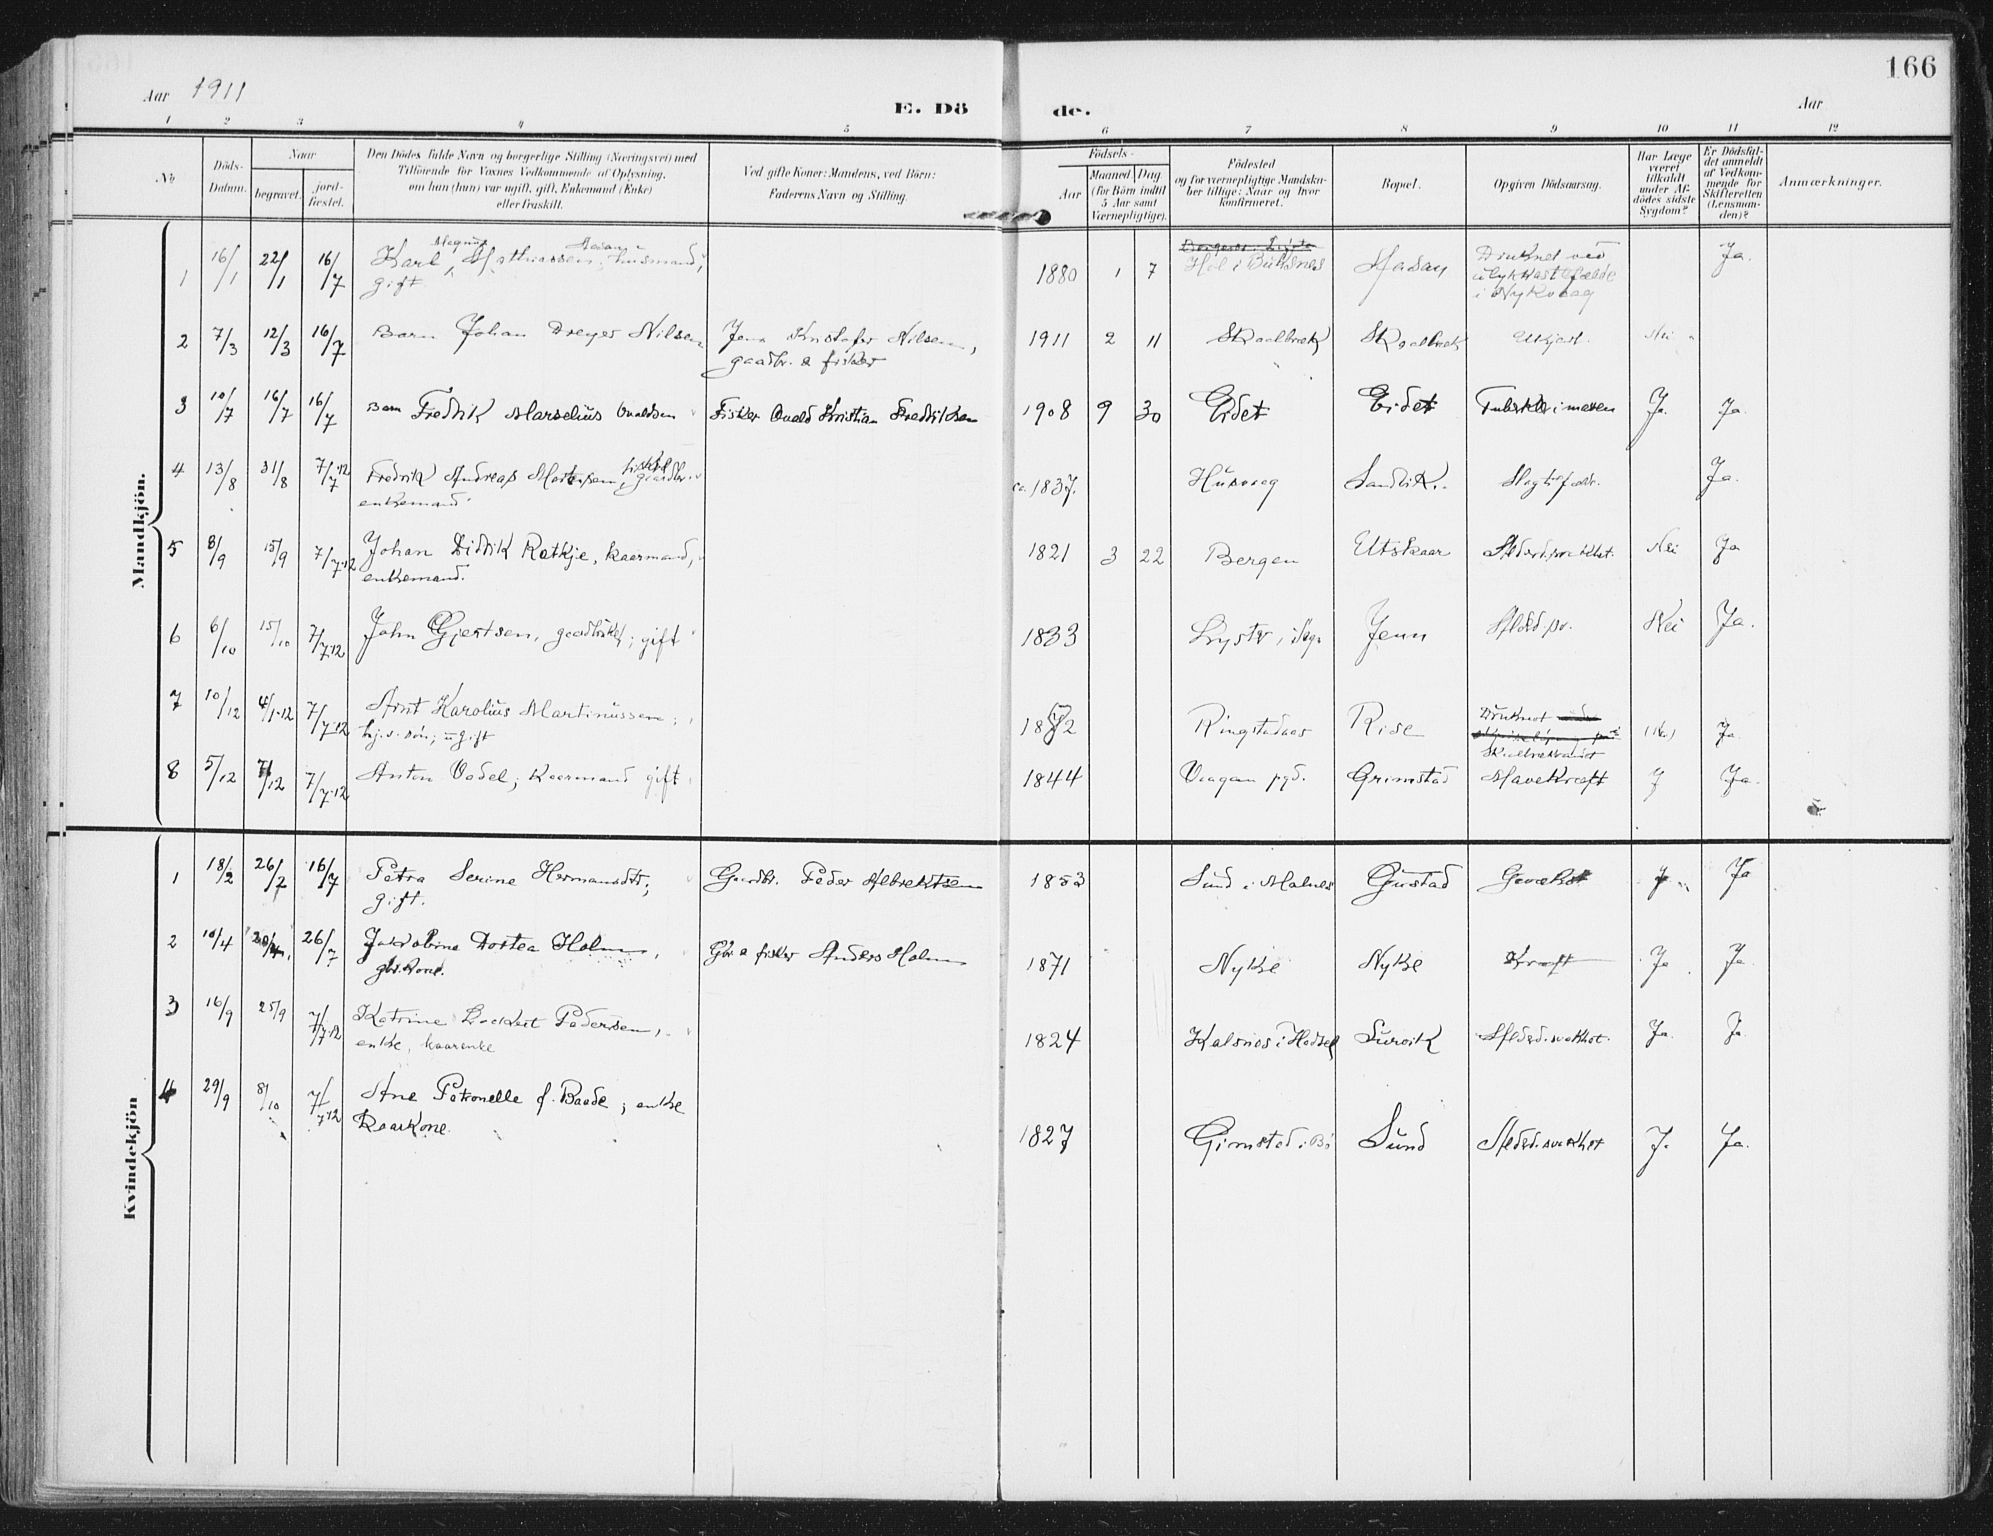 166
Aar 1911
E. Dö de.
Aar
1 2 3 4 5 6 7 8 9 10 11 12
No
Döds-Datum.
Naar
begravet.
jord-fæstet.
Den Dödes fulde Navn og borgerlige Stilling (Næringsvei) med
Tilföiende for Voxnes Vedkommende af Oplysning,
om han (hun) var ugift, gift, Enkemand (Enke)
eller fraskilt.
Ved gifte Koner: Mandens, ved Börn:
Faderens Navn og Stilling.
Födsels-
Aar
Maaned Dag
(for Börn indtil
5 Aar samt
Værnepligtige).
Födested
og for værnepligtige Mandskaber tillige: Naar og hvor
konfirmeret.
Bopæl.
Opgiven Dödsaarsag.
Har Læge
været
tilkaldt
under Afdödes sidste
Sygdom?
Er Dödsfaldet anmeldt
af Vedkommende for
Skifteretten
(Lensmanden)?
Anmærkninger.
Mandkjön.
1 16/1 22/1 16/7 Karl Magnus Mathiassen, husmand, 1880 1 7 Hol i Buksnes Ja.
gift.
Druknet ved
ulykkestilfælde
i Nykvaag
2 7/3 12/3 16/7 Barn Johan Dreyer Nilsen Jens Kristofer Nilsen, 1911 2 11 Skaalbrek Skaalbrek Ukjent. Nei
gaardbr. & fisker
3 10/7 16/7 16/7 Barn Fredrik Marselius Ovaldsen Fisker Ovald Kristian Fredriksen 1908 9 30 Eidet Eidet Ja. Ja.
4 13/8 31/8 7/7-12 Fredrik Andreas Mortensen, fisker, gaardbr. ca. 1837. Husvaag Sandvik. Slagtilfælde. Ja.
enkemand.
5 8/9 15/9 7/7-12 Johan Didrik Rotkje, kaarmand, 1821 3 22 Bergen Utskaar Alderd.svækket. Nei Ja
enkemand.
6 6/10 15/10 7/7-12 John Gjertsen, gaardbruker; gift 1833 Lyster i Sogn Jenn Alderd.sv. Nei Ja.
7 10/12 4/1-12 7/7-12 Arnt Karolius Martinussen; 1872 Ringstadaas Rise Druknet (Nei) Ja.
hj.v. søn; ugift
8 5/12 7/12 7/7-12 Anton Vedel, kaarmand gift 1844 Vaagan pgd. Grimstad Mavekræft J Ja.
Kvindekjön
1 18/2 26/2 16/7 Petra Serine Hermansdtr, Gaardbr. Peder Albrektsen 1853 Sund i Malnes Gustad Ja
gift.
2 10/4 20/4. 26/7 Jakobine Dortea Holm, Gbr & fisker Anders Holm 1871 Nyke Nyke Kræft Ja Ja
gbr.kone.
3 16/9 25/9 7/7-12 Katrine Lockert Pedersen, 1824 Kalsnes i Hadsel Survik Alderd.svækket. Ja. Ja.
enke, kaarenke
4 29/9 8/10 7/7-12 Ane Petronelle f. Baade; enke
Kaarkone. 1827 Gimstad i Bø Sund Alderd.svækket J. Ja.